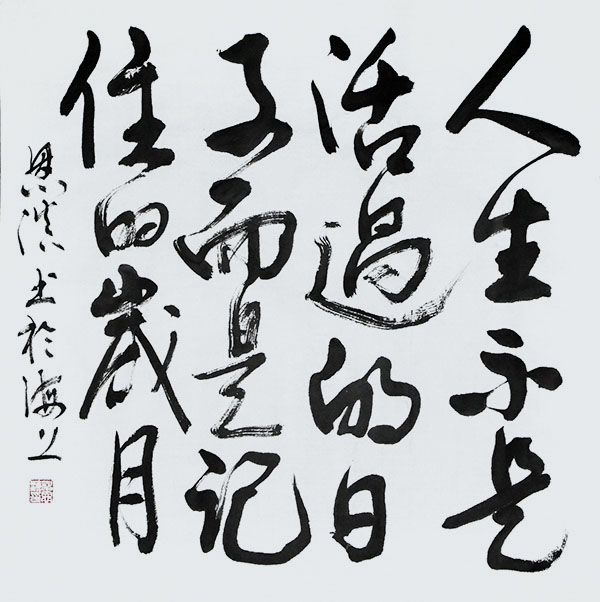 人生不是
活過的日
子而是记
住的歲月
思滨书於海上